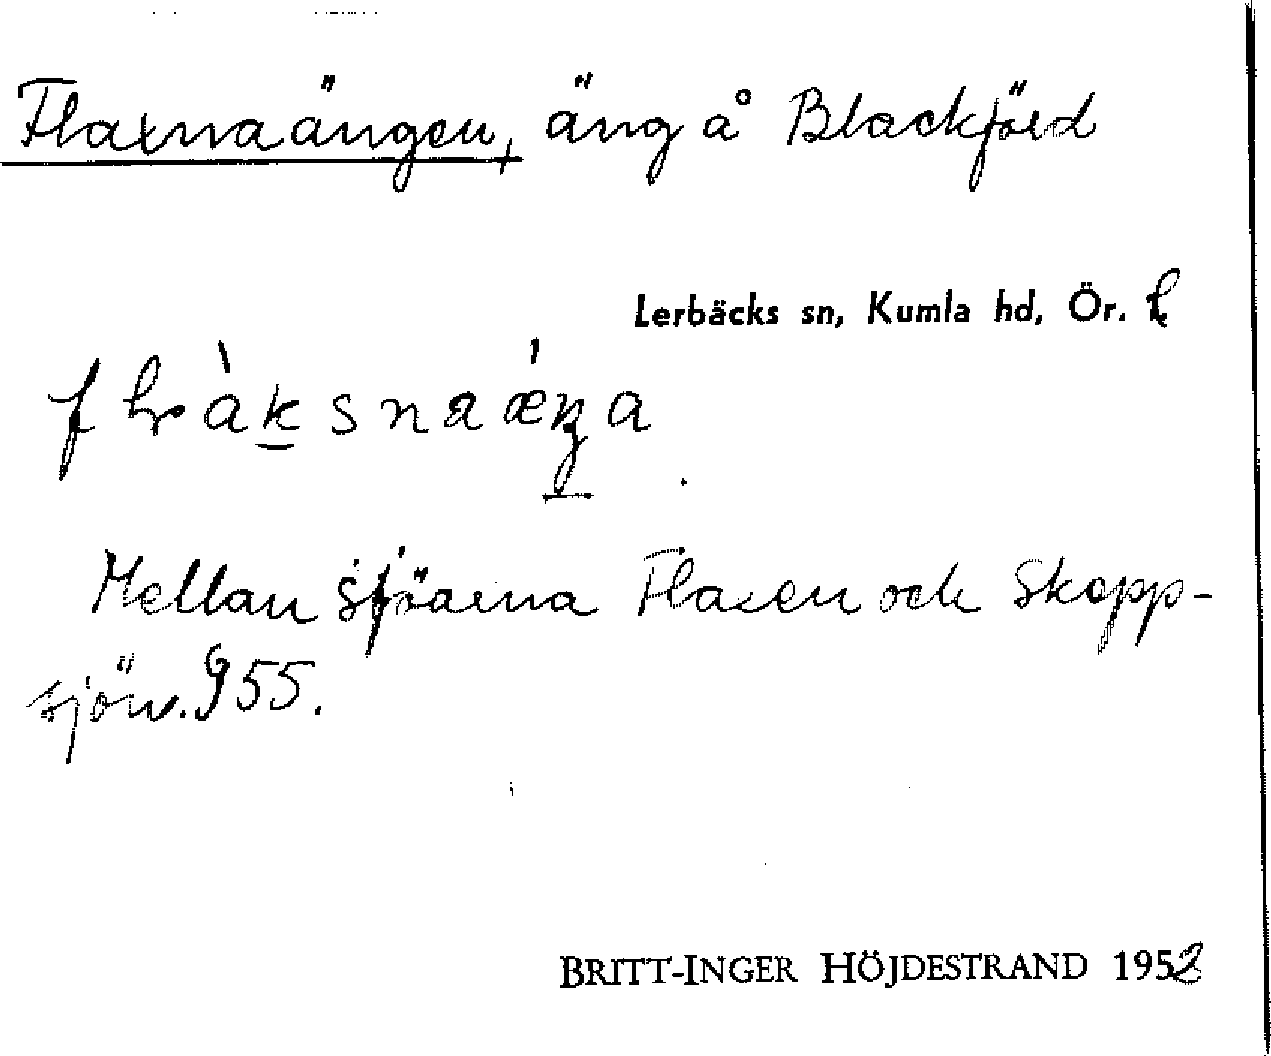 Flaxnaängen, äng å Blackfjöld
Lerbäcks sn, Kumla hd, Ör. l
Mellan sjöarna Flaxen och Skepp-
sjön. 955.
BRITT-INGER HÖJDESTRAND 1952